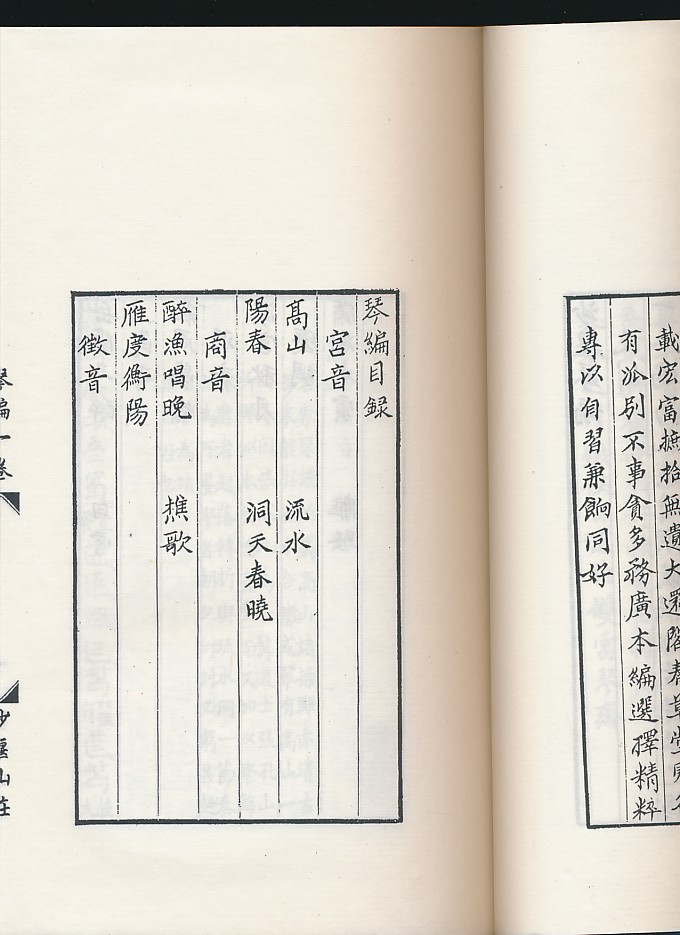 載宏富摭拾無遺大還閣春草堂
有派別不事貪多務廣本編選擇精粹
專以自習兼餉同好
琴編目錄
宮音
髙山 流水
陽春 洞天春曉
商音
醉漁唱晚 樵歌
雁度衡陽
徵音
琴編一卷
沙堰山莊